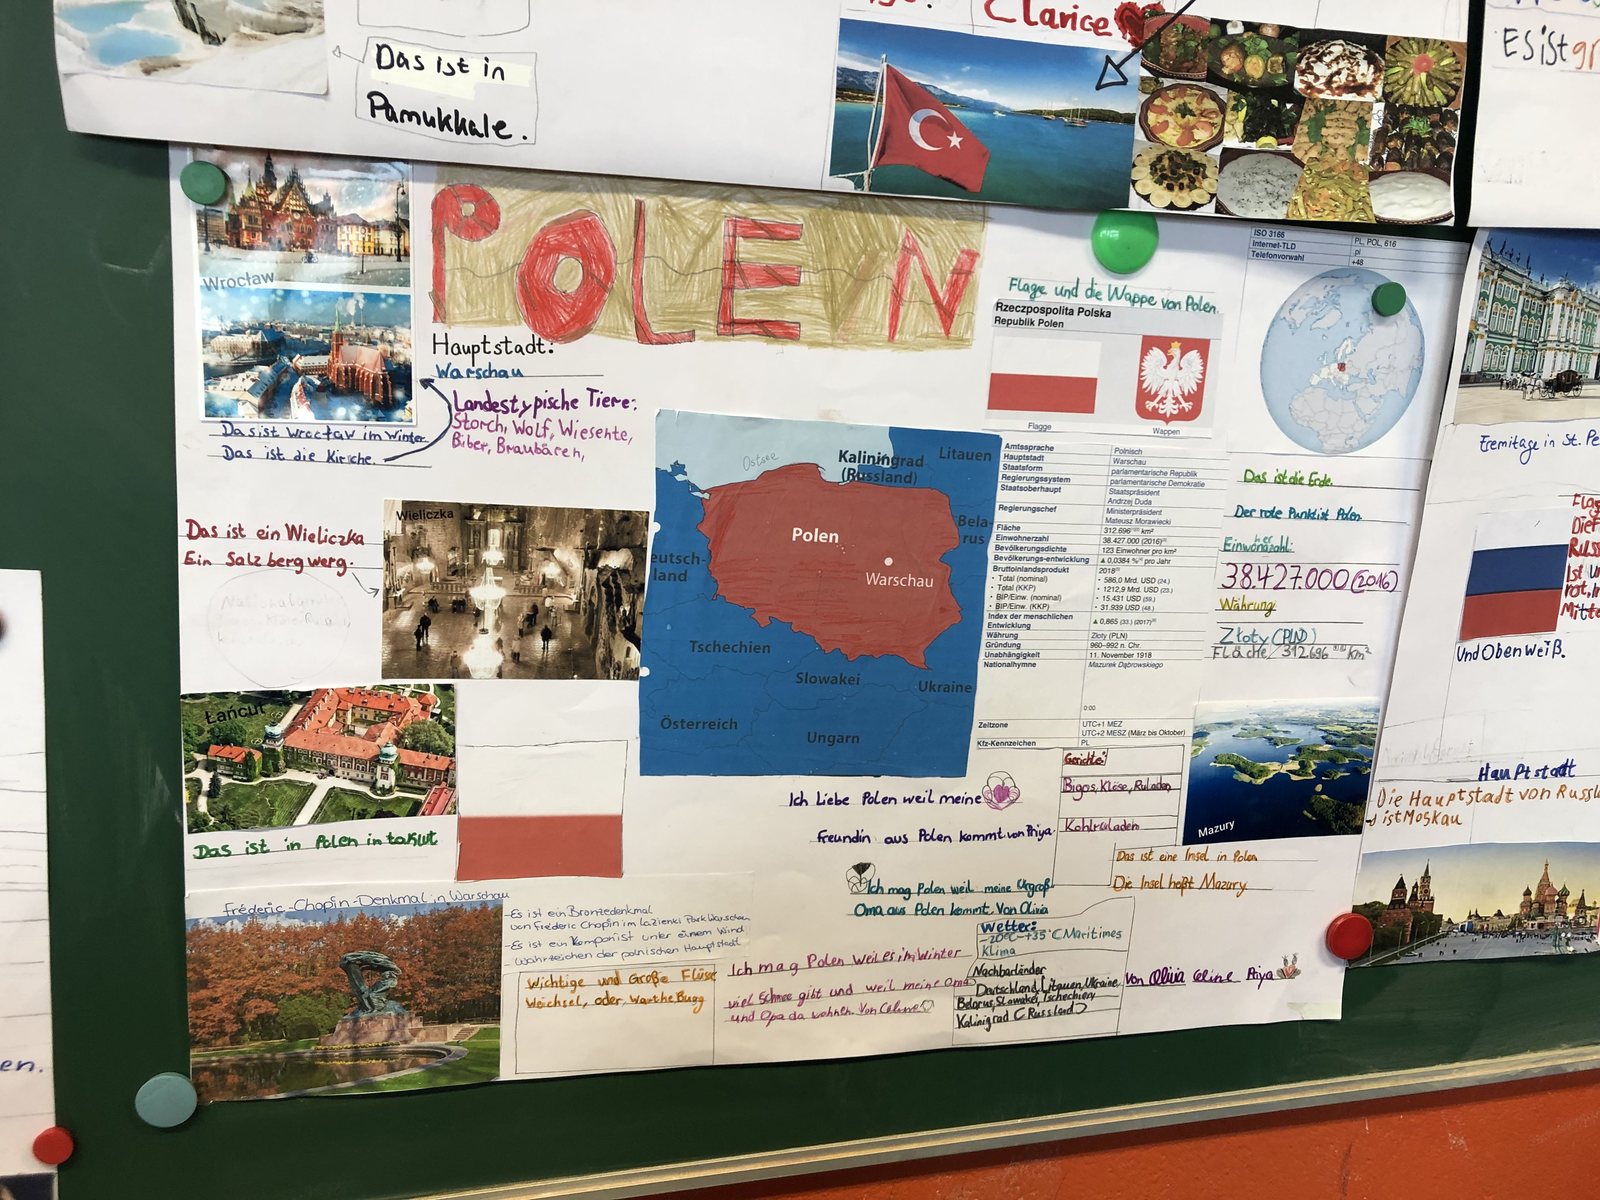 Das ist in
Pamukkale.
Clarice
Es ist
Wrocław
POLEN
Hauptstadt:
Warschau
Landestypische Tiere:
Storch, Wolf, Wiesente,
Biber, Braubären,
Das ist Wrocław im Winter
Das ist die Kirche.
Flage und die Wappe von Polen.
Rzeczpospolita Polska
Republik Polen
Flagge
Wappen
ISO 3166 PL, POL, 616
Internet-TLD .pl
Telefonvorwahl +48
Das ist ein Wieliczka
Ein Salzbergwerg.
Wieliczka
Ostsee
Kaliningrad
(Russland)
Litauen
Bela-
rus
Polen
Warschau
eutsch-
land
Tschechien
Slowakei
Ukraine
Österreich
Ungarn
Amtssprache Polnisch
Hauptstadt Warschau
Staatsform parlamentarische Republik
Regierungssystem parlamentarische Demokratie
Staatsoberhaupt Staatspräsident
Andrzej Duda
Regierungschef Ministerpräsident
Mateusz Morawiecki
Fläche 312.696 km²
Einwohnerzahl 38.427.000 (2016)
Bevölkerungsdichte 123 Einwohner pro km²
Bevölkerungs-entwicklung ▲ 0,0384 % pro Jahr
Bruttoinlandsprodukt 2018
• Total (nominal) • 586,0 Mrd. USD (24.)
• Total (KKP) • 1212,9 Mrd. USD (23.)
• BIP/Einw. (nominal) • 15.431 USD (59.)
• BIP/Einw. (KKP) • 31.939 USD (48.)
Index der menschlichen
Entwicklung ▲ 0,865 (33.) (2017)
Währung Złoty (PLN)
Gründung 960–992 n. Chr.
Unabhängigkeit 11. November 1918
Nationalhymne Mazurek Dąbrowskiego
0:00
Zeitzone UTC+1 MEZ
UTC+2 MESZ (März bis Oktober)
Kfz-Kennzeichen PL
Das ist die Erde.
Der rote Punkt ist Polen
Einwonerzahl:
38.427.000 (2016)
Währung
Złoty (PLN)
Fläche/312.696 km²
Łańcut
Das ist in Polen in
Ich Liebe Polen weil meine
freundin aus Polen kommt. von Priya.
Gerichte:
Bigos, Klöse, Ruladen
Kohlruladen
Mazury
Das ist eine Insel in Polen
Die Insel heßt Mazury
Ich mag Polen weil meine Urgroß-
Oma aus Polen kommt. Von Olivia
Fréderic-Chopin-Denkmal in Warschau
-Es ist ein Bronzedenkmal
von Fréderic Chopin im Łazienki Park Warschau
-Es ist ein Komponist unter einem Wind
Wahrzeichen der polnischen Hauptstadt
Wichtige und Große Flüsse
Weichsel, oder, Warthe, Burg
Ich mag Polen weil es im Winter
viel Schnee gibt und weil meine Oma
und Opa da wohnen. Von
Wetter:
-20°C-+35°C Maritimes
Klima
Nachbarländer
Deutschland, Litauen, Ukraine,
Belarus, Slowakei, Tschechien,
Kalinigrad (Russland)
Von Olivia Celine Priya
Eremitage in St. Pe
Und Oben Weiß.
Hauptstadt
Die Hauptstadt von Russl
ist Moskau
en.